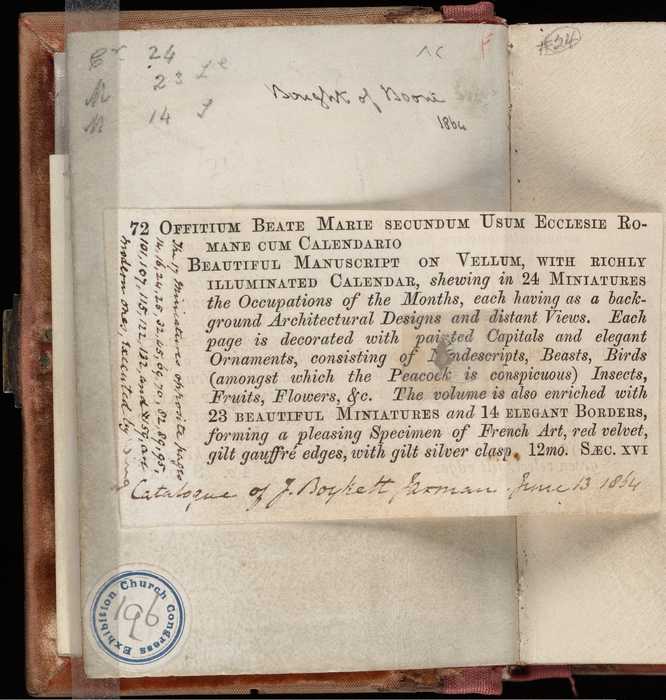 Cr 24
M 23 Le
M 14 J
#24
Bought of Boone
1864
72 Offitium Beate Marie secundum Usum Ecclesie Ro-
mane cum Calendario
Beautiful Manuscript on Vellum, with richly
illuminated Calendar, shewing in 24 Miniatures
the Occupations of the Months, each having as a back-
ground Architectural Designs and distant Views. Each
page is decorated with painted Capitals and elegant
Ornaments, consisting of Nondescripts, Beasts, Birds
(amongst which the Peacock is conspicuous) Insects,
Fruits, Flowers, &c. The volume is also enriched with
23 beautiful Miniatures and 14 elegant Borders,
forming a pleasing Specimen of French Art, red velvet,
gilt gauffré edges, with gilt silver clasp. 12mo. Sæc. XVI
The 17 Miniatures opposite pages
14, 16, 24, 25, 32, 45, 69, 70, 82, 89, 95,
101, 107, 115, 122, 132, and 159, are
modern ones, executed by
Catalogue of J. Boykett Jarman. June 13 1864
Exhibition Church Congress
196